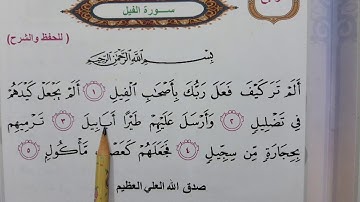 سورة الفيل
( للحفظ والشرح )
بِسْمِ اللَّهِ الرَّحْمَٰنِ الرَّحِيمِ
أَلَمْ تَرَ كَيْفَ فَعَلَ رَبُّكَ بِأَصْحَابِ الْفِيلِ ١ أَلَمْ يَجْعَلْ كَيْدَهُمْ
فِي تَضْلِيلٍ ٢ وَأَرْسَلَ عَلَيْهِمْ طَيْرًا أَبَابِيلَ ٣ تَرْمِيهِم
بِحِجَارَةٍ مِّن سِجِّيلٍ ٤ فَجَعَلَهُمْ كَعَصْفٍ مَّأْكُولٍ ٥
صدق الله العلي العظيم